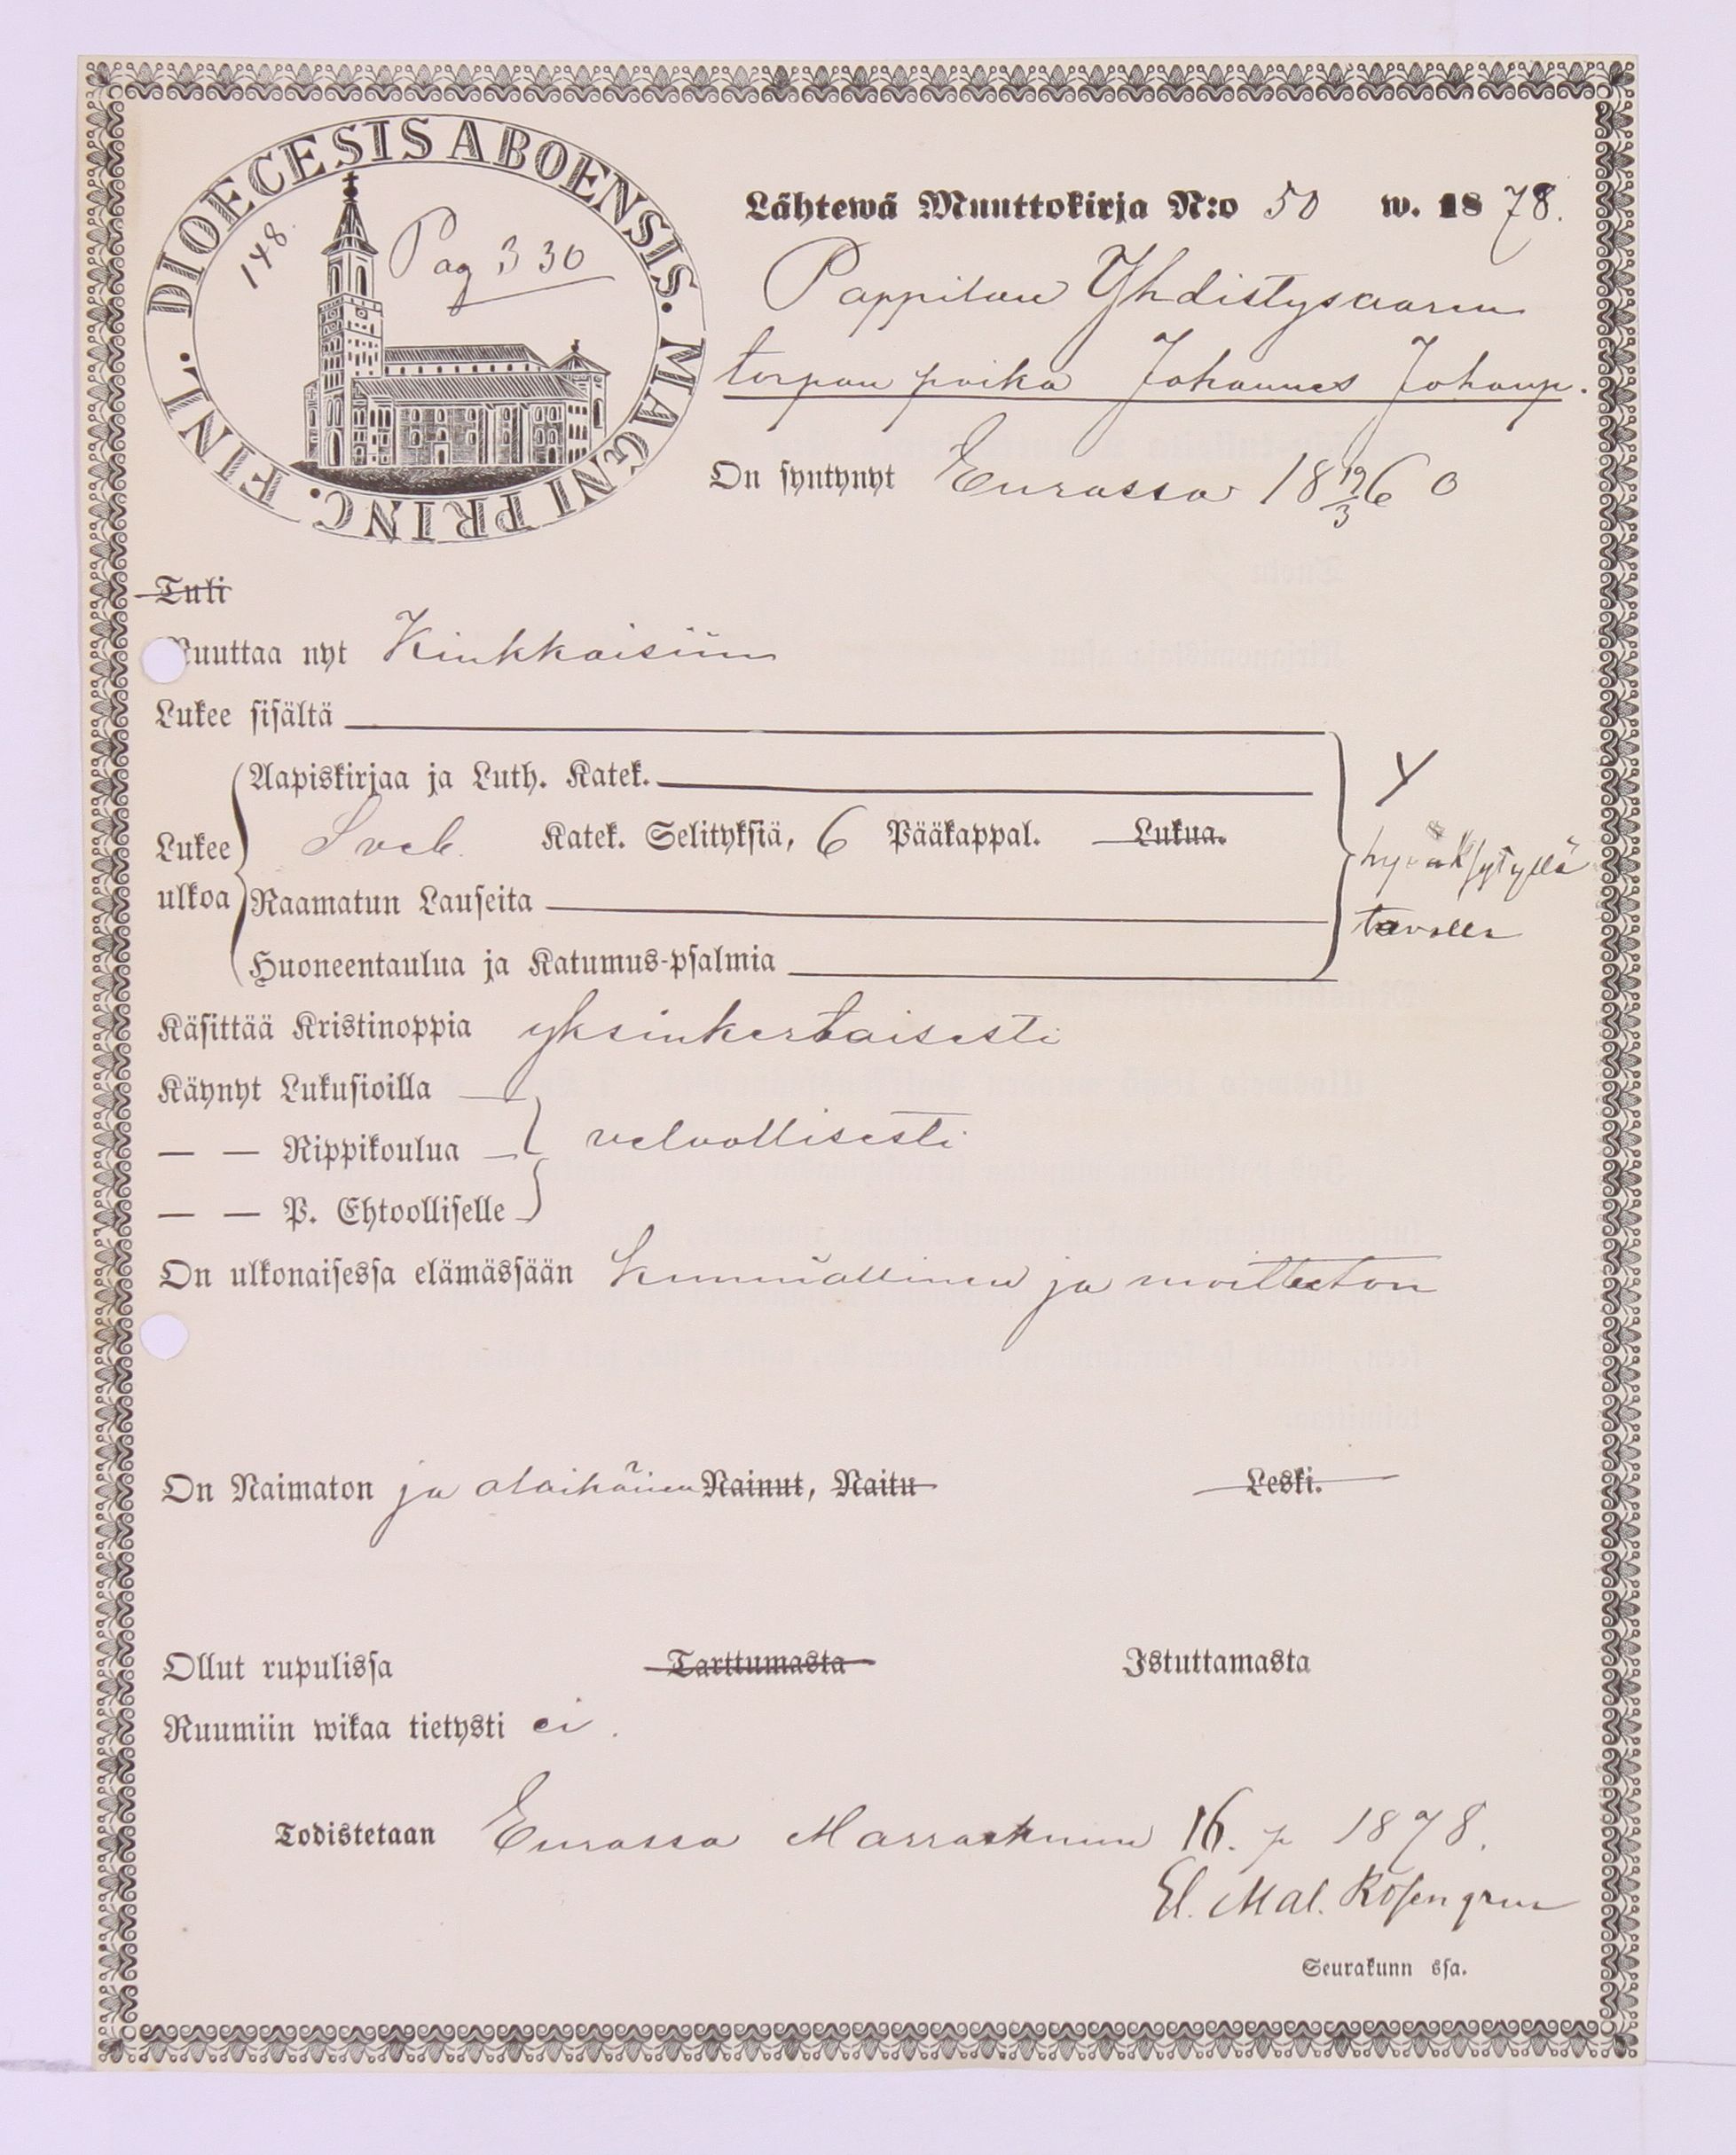 DIOECESIS ABOENSIS. MAGNI PRINC. FINL.
148.
Pag 330
Lähtewä Muuttokirja N:o 50 w. 1878.
Pappilan Yhdistysaaren
torpan poika Johannes Johanp.
On syntynyt Eurassa 18 19/3 60
Tuli
Muuttaa nyt Kiukkaisiin
Lukee sisältä
Aapiskirjaa ja Luth. Katek.
Lukee ulkoa
Sveb. Katek. Selityksiä, 6 Pääkappal. Lukua.
hyväksytyllä
tavalla
Raamatun Lauseita
Huoneentaulua ja Katumus-psalmia
Käsittää Kristinoppia yksinkertaisesti
Käynyt Lukusioilla
— — Rippikoulua velvollisesti
— — P. Ehtoolliselle
On ulkonaisessa elämässään kunniallinen ja moitteeton
On Naimaton ja alaikäinen Nainut, Naitu Leski.
Ollut rupulissa Tarttumasta Istuttamasta
Ruumiin wikaa tietysti ei.
Todistetaan Eurassa Marraskuun 16. p 1878.
El. Mal. Rosengren
Seurakunn ssa.